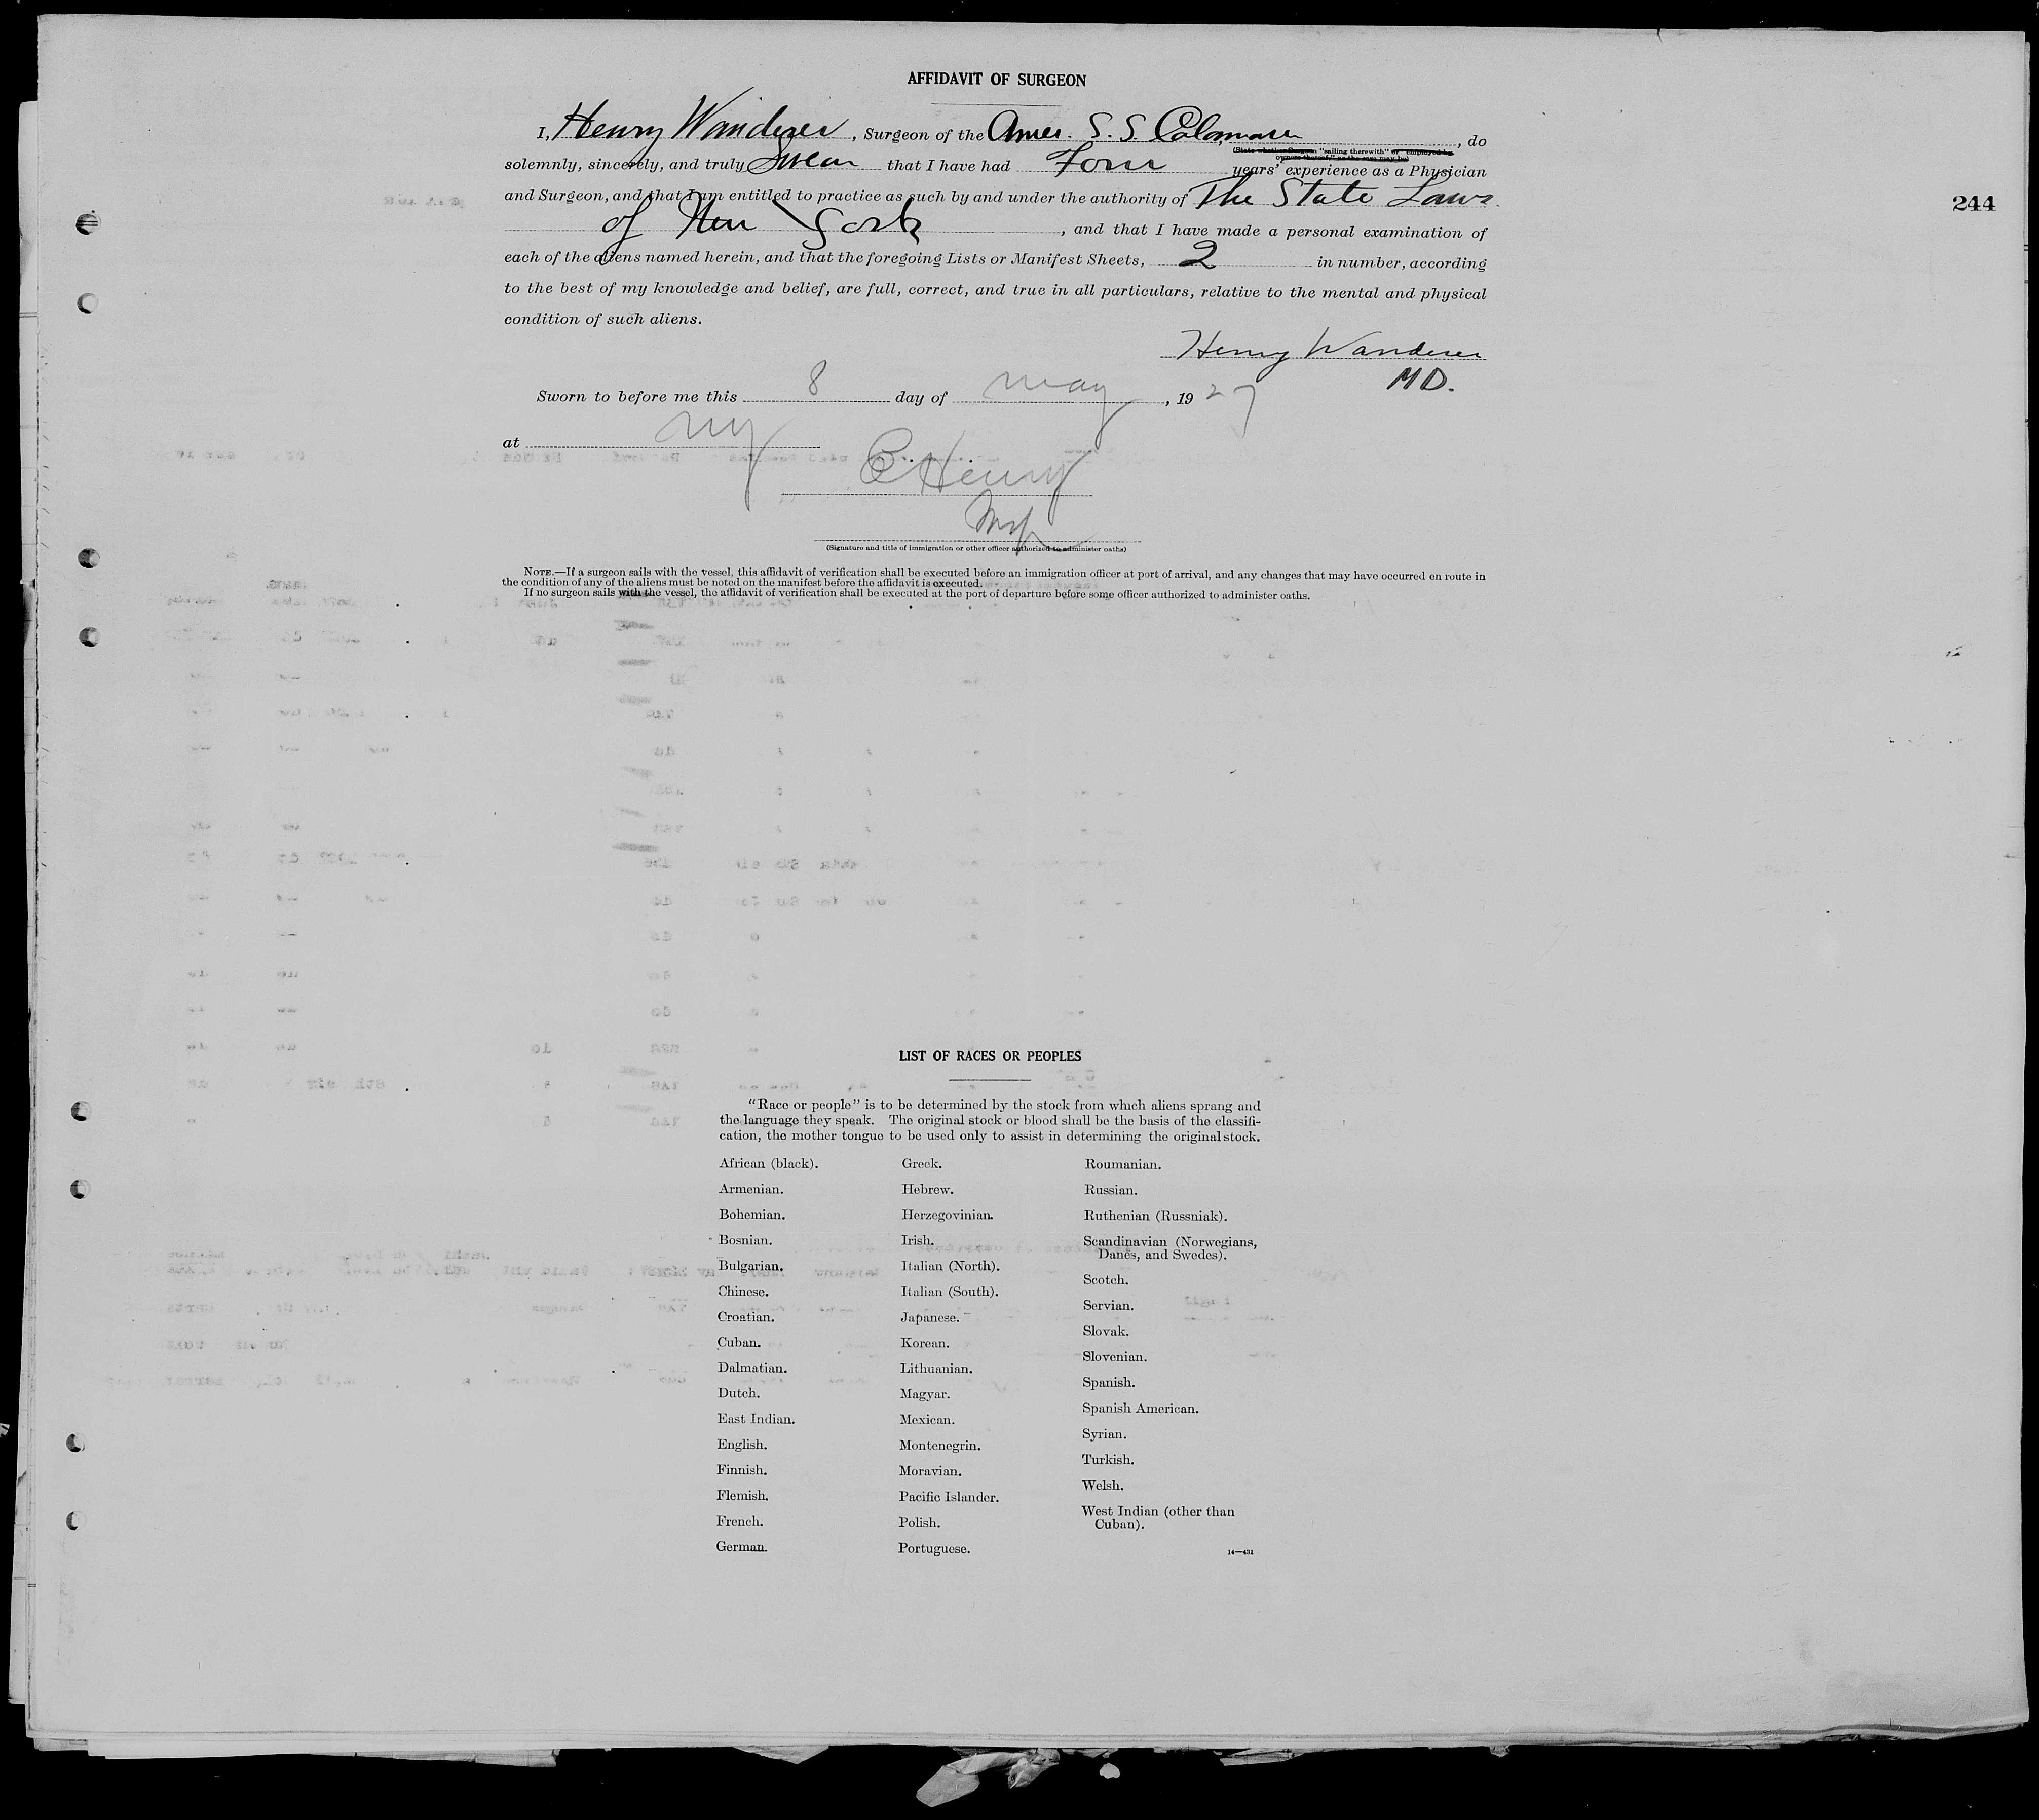 AFFIDAVIT OF SURGEON
I, Henry Wanderer, Surgeon of the Amer. S. S. Calamares, do
(State whether Surgeon "sailing therewith" or "employed by
owners thereof," as the case may be)
solemnly, sincerely, and truly Swear that I have had Four years' experience as a Physician
and Surgeon, and that I am entitled to practice as such by and under the authority of The State Laws
of New York, and that I have made a personal examination of
244
each of the aliens named herein, and that the foregoing Lists or Manifest Sheets, 2 in number, according
to the best of my knowledge and belief, are full, correct, and true in all particulars, relative to the mental and physical
condition of such aliens.
Henry Wanderer
MD.
Sworn to before me this 8 day of May, 1927
at NY
C Henry
Insp
(Signature and title of immigration or other officer authorized to administer oaths)
NOTE.—If a surgeon sails with the vessel, this affidavit of verification shall be executed before an immigration officer at port of arrival, and any changes that may have occurred en route in
the condition of any of the aliens must be noted on the manifest before the affidavit is executed.
If no surgeon sails with the vessel, the affidavit of verification shall be executed at the port of departure before some officer authorized to administer oaths.
LIST OF RACES OR PEOPLES
"Race or people" is to be determined by the stock from which aliens sprang and
the language they speak. The original stock or blood shall be the basis of the classifi-
cation, the mother tongue to be used only to assist in determining the original stock.
African (black).
Armenian.
Bohemian.
Bosnian.
Bulgarian.
Chinese.
Croatian.
Cuban.
Dalmatian.
Dutch.
East Indian.
English.
Finnish.
Flemish.
French.
German.
Greek.
Hebrew.
Herzegovinian.
Irish.
Italian (North).
Italian (South).
Japanese.
Korean.
Lithuanian.
Magyar.
Mexican.
Montenegrin.
Moravian.
Pacific Islander.
Polish.
Portuguese.
Roumanian.
Russian.
Ruthenian (Russniak).
Scandinavian (Norwegians,
Danes, and Swedes).
Scotch.
Servian.
Slovak.
Slovenian.
Spanish.
Spanish American.
Syrian.
Turkish.
Welsh.
West Indian (other than
Cuban).
14—431